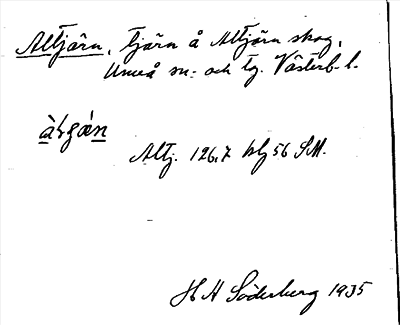 Altjärn, tjärn å Altjärn skog,
Umeå sn. och tg. Västerb. l.
Altj. 126,7 blz 56 SM.
H H Söderberg 1935